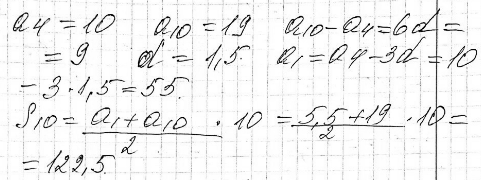 a4 = 10 a10 = 19 a10 - a4 = 6d =
= 9 d = 1,5. a1 = a4 - 3d = 10
- 3 · 1,5 = 55.
S10 = (a1 + a10)/2 · 10 = (5,5 + 19)/2 · 10 =
= 122,5.